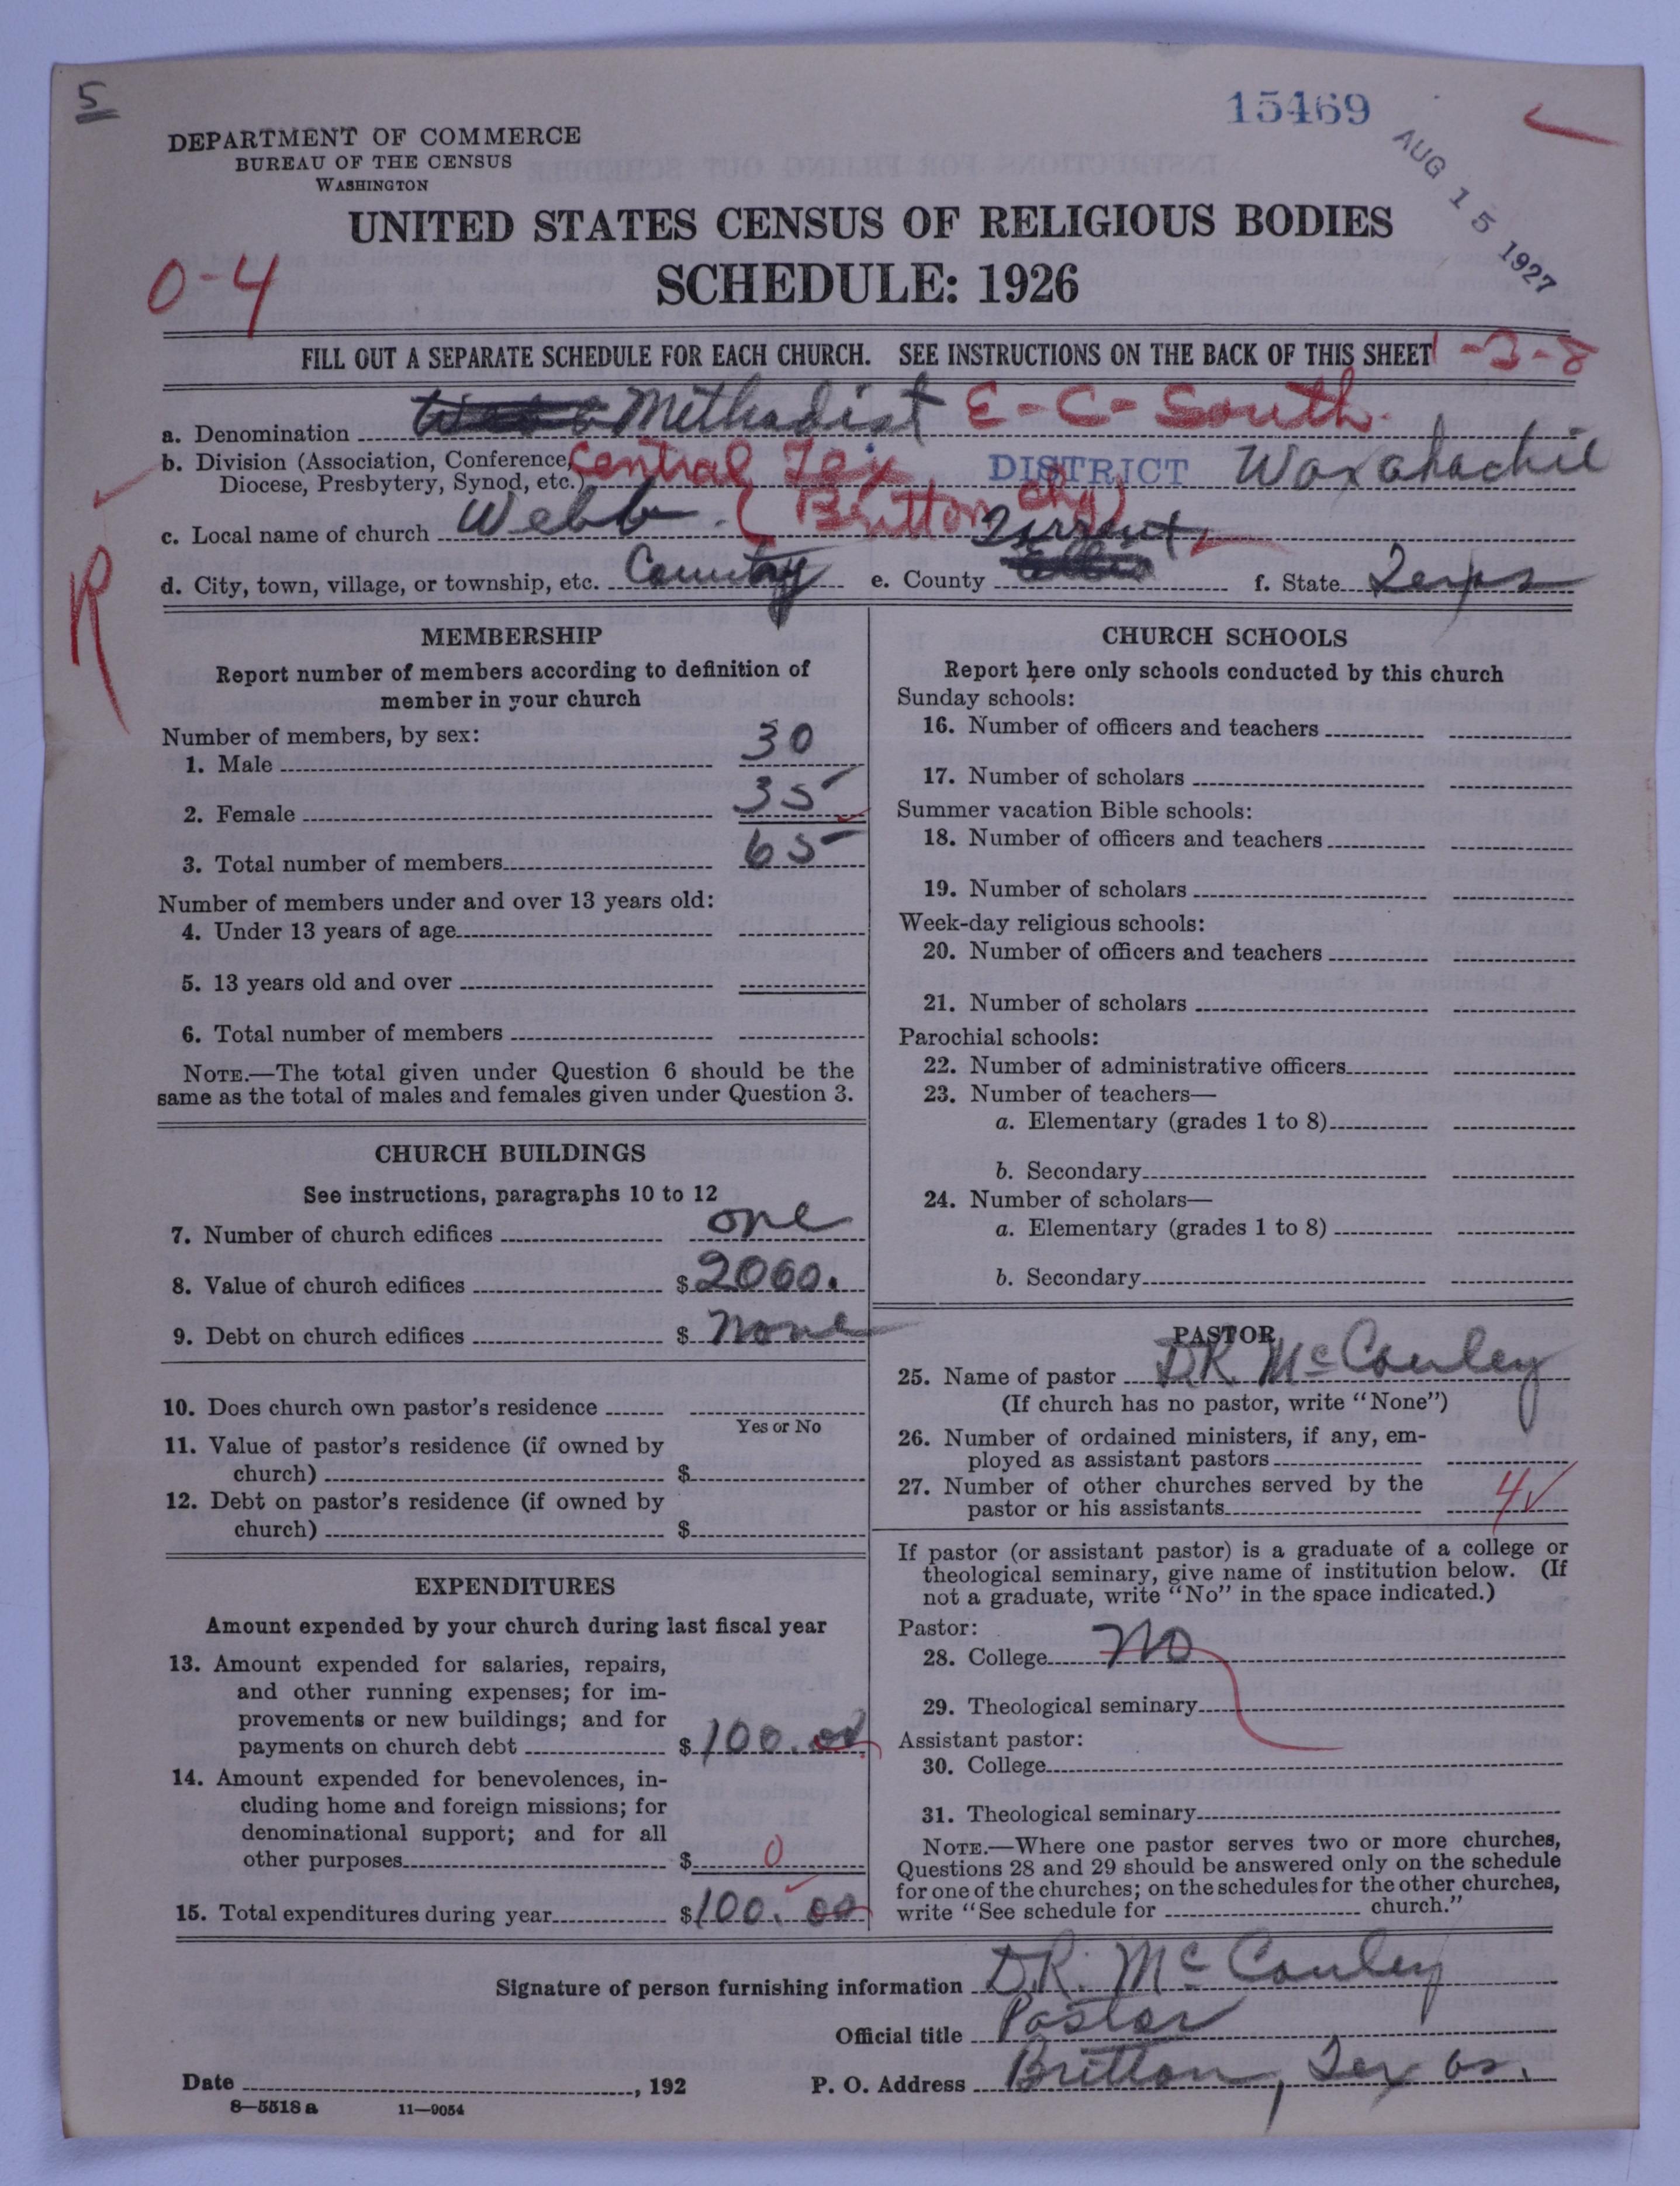 5
15469
AUG 15 1927
DEPARTMENT OF COMMERCE
BUREAU OF THE CENSUS
WASHINGTON
UNITED STATES CENSUS OF RELIGIOUS BODIES
SCHEDULE: 1926
0-4
FILL OUT A SEPARATE SCHEDULE FOR EACH CHURCH. SEE INSTRUCTIONS ON THE BACK OF THIS SHEET
1-3-8
a. Denomination Methodist E-C-South.
b. Division (Association, Conference, Central Tex DISTRICT Waxahachie
Diocese, Presbytery, Synod, etc.)
c. Local name of church Webb. (Britton Chg)
Tarrent
d. City, town, village, or township, etc. Country e. County Ellis f. State Texas
R
MEMBERSHIP
Report number of members according to definition of
member in your church
Number of members, by sex:
1. Male 30
2. Female 35
3. Total number of members 65
Number of members under and over 13 years old:
4. Under 13 years of age
5. 13 years old and over
6. Total number of members
NOTE.—The total given under Question 6 should be the
same as the total of males and females given under Question 3.
CHURCH BUILDINGS
See instructions, paragraphs 10 to 12
7. Number of church edifices one
8. Value of church edifices $2000.
9. Debt on church edifices $ none
10. Does church own pastor's residence
Yes or No
11. Value of pastor's residence (if owned by
church) $
12. Debt on pastor's residence (if owned by
church) $
EXPENDITURES
Amount expended by your church during last fiscal year
13. Amount expended for salaries, repairs,
and other running expenses; for im-
provements or new buildings; and for
payments on church debt $100.00
14. Amount expended for benevolences, in-
cluding home and foreign missions; for
denominational support; and for all
other purposes $ 0
15. Total expenditures during year $100.00
CHURCH SCHOOLS
Report here only schools conducted by this church
Sunday schools:
16. Number of officers and teachers
17. Number of scholars
Summer vacation Bible schools:
18. Number of officers and teachers
19. Number of scholars
Week-day religious schools:
20. Number of officers and teachers
21. Number of scholars
Parochial schools:
22. Number of administrative officers
23. Number of teachers—
a. Elementary (grades 1 to 8)
b. Secondary
24. Number of scholars—
a. Elementary (grades 1 to 8)
b. Secondary
PASTOR
25. Name of pastor D.R. McCauley
(If church has no pastor, write "None")
26. Number of ordained ministers, if any, em-
ployed as assistant pastors
27. Number of other churches served by the
pastor or his assistants 4
If pastor (or assistant pastor) is a graduate of a college or
theological seminary, give name of institution below. (If
not a graduate, write "No" in the space indicated.)
Pastor:
28. College No
29. Theological seminary
Assistant pastor:
30. College
31. Theological seminary
NOTE.—Where one pastor serves two or more churches,
Questions 28 and 29 should be answered only on the schedule
for one of the churches; on the schedules for the other churches,
write "See schedule for church."
Signature of person furnishing information D.R. McCauley
Official title Pastor
Date , 192 P. O. Address Britton, Texas.
8—5518 a 11—9054